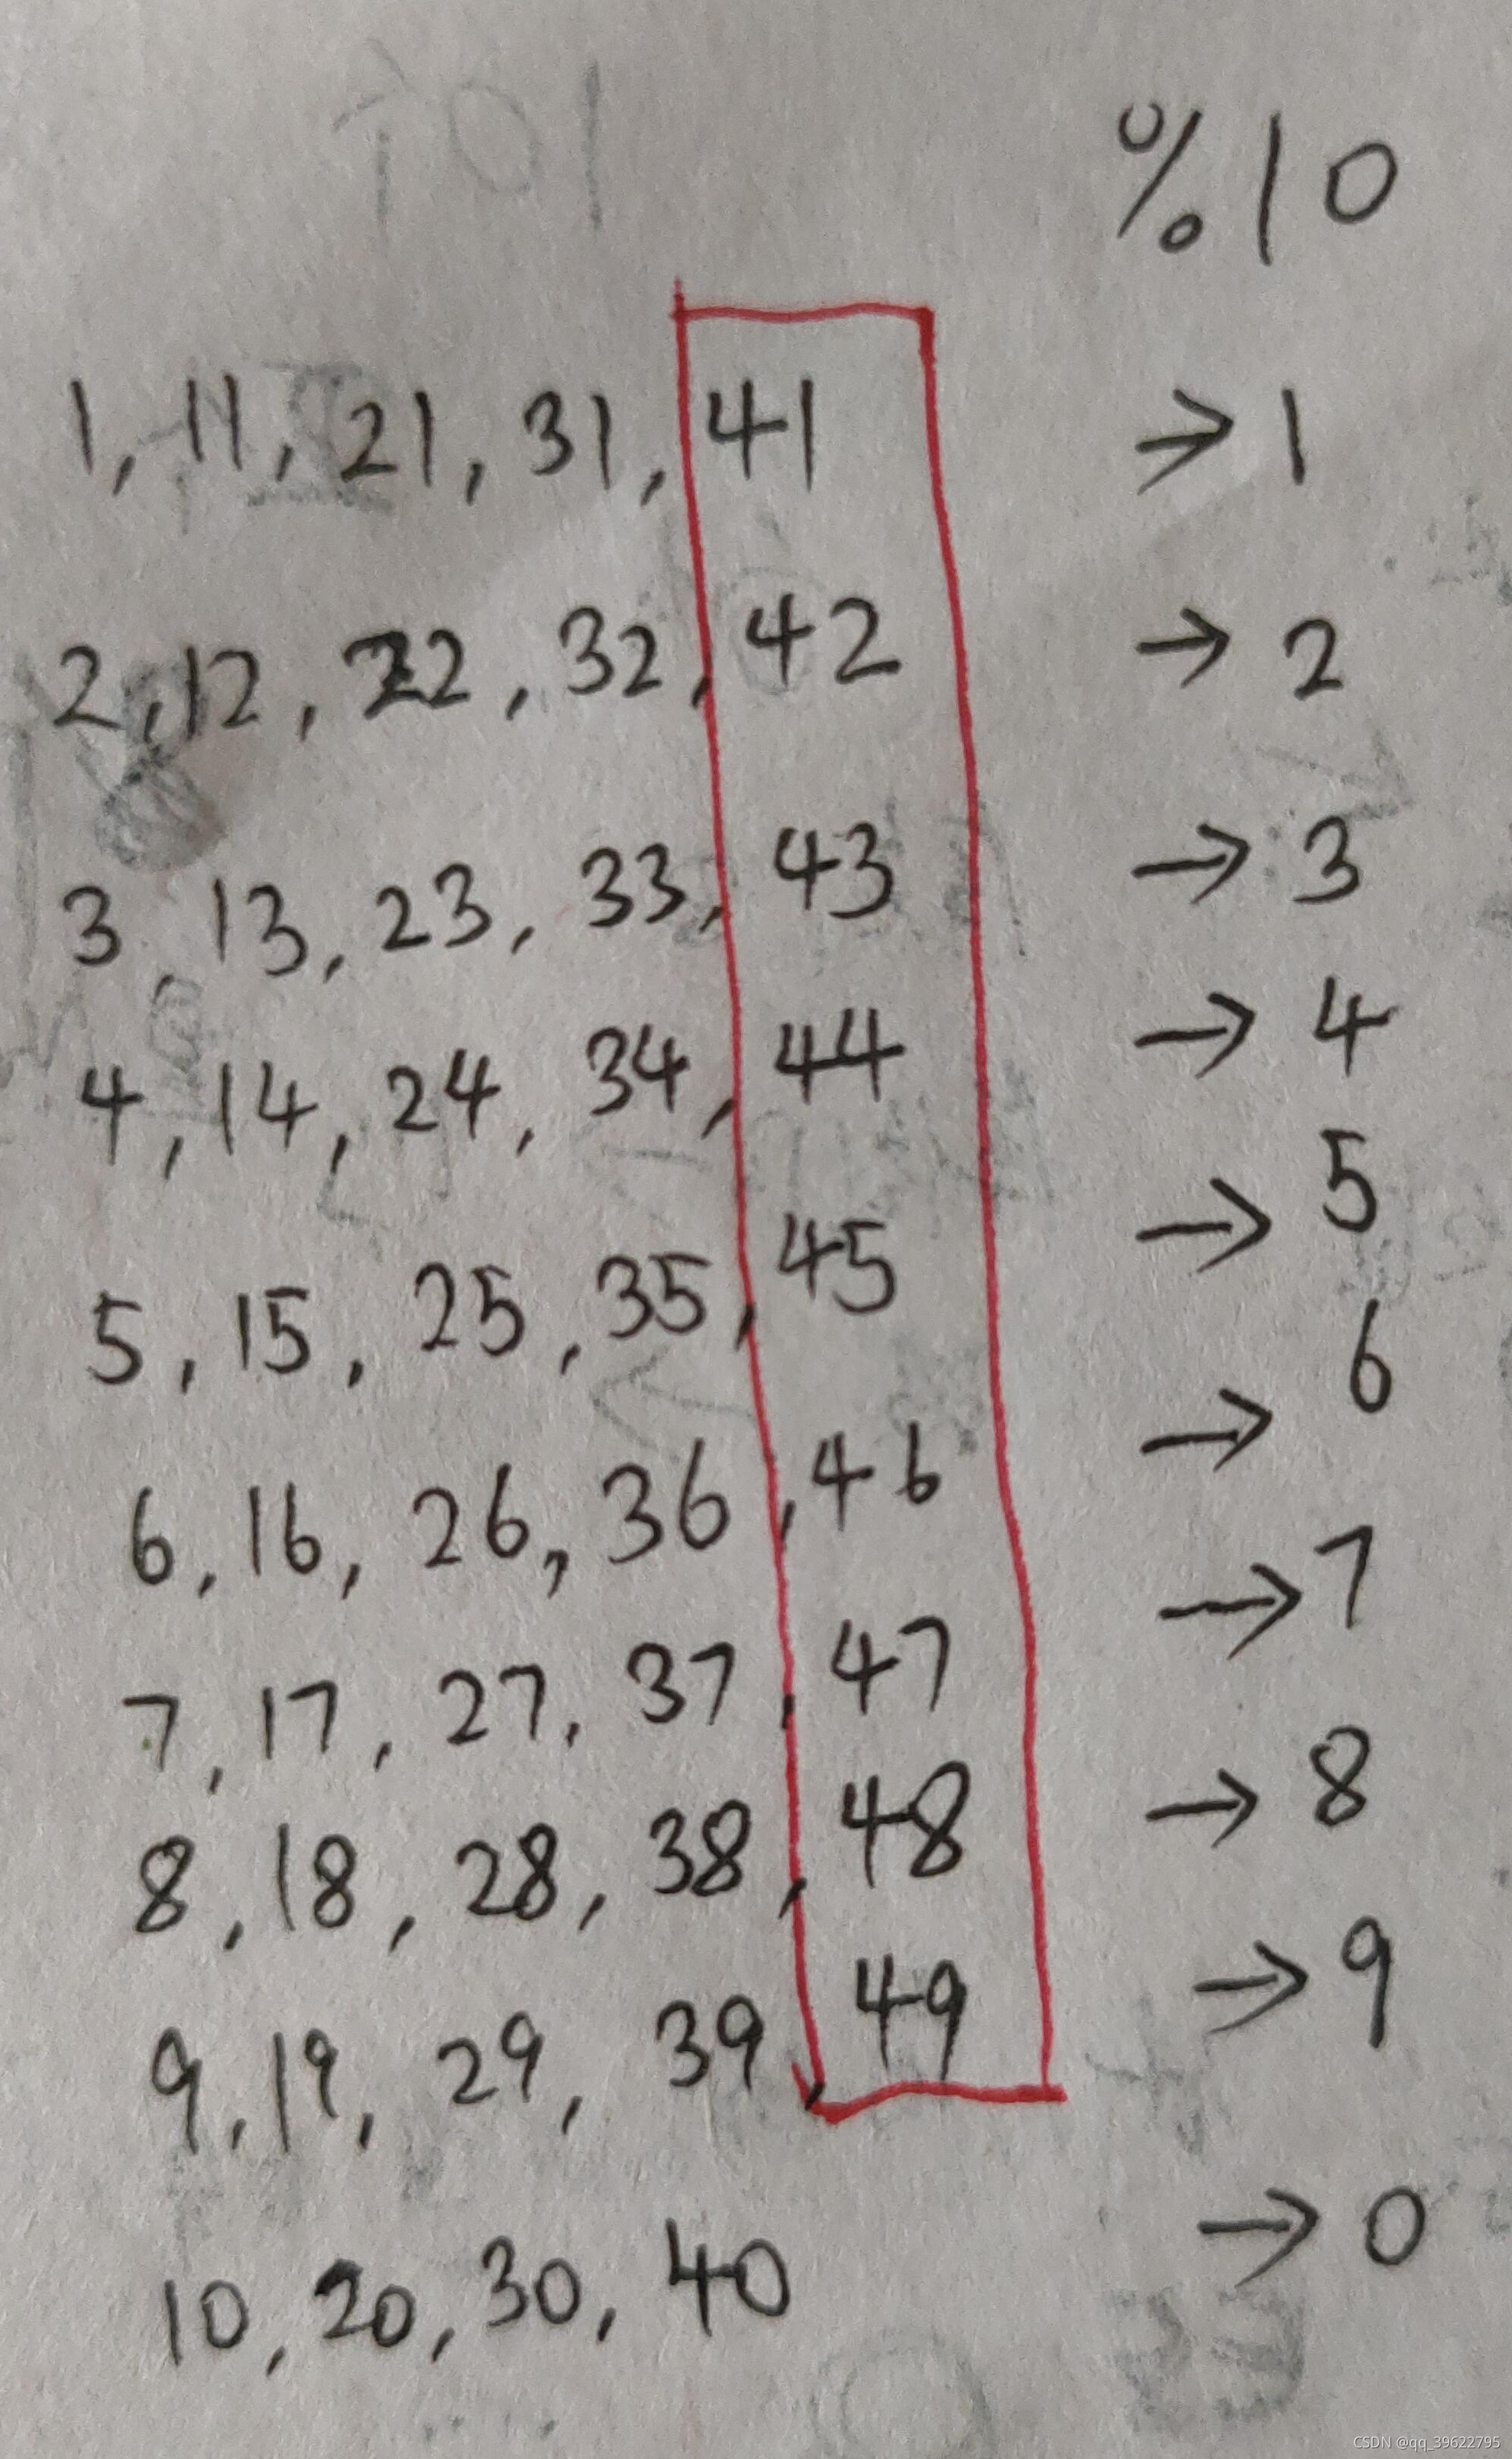 %10
1, 11, 21, 31, 41 → 1
2, 12, 22, 32, 42 → 2
3, 13, 23, 33, 43 → 3
4, 14, 24, 34, 44 → 4
5, 15, 25, 35, 45 → 5
6, 16, 26, 36, 46 → 6
7, 17, 27, 37, 47 → 7
8, 18, 28, 38, 48 → 8
9, 19, 29, 39, 49 → 9
10, 20, 30, 40 → 0
CSDN @qq_39622795